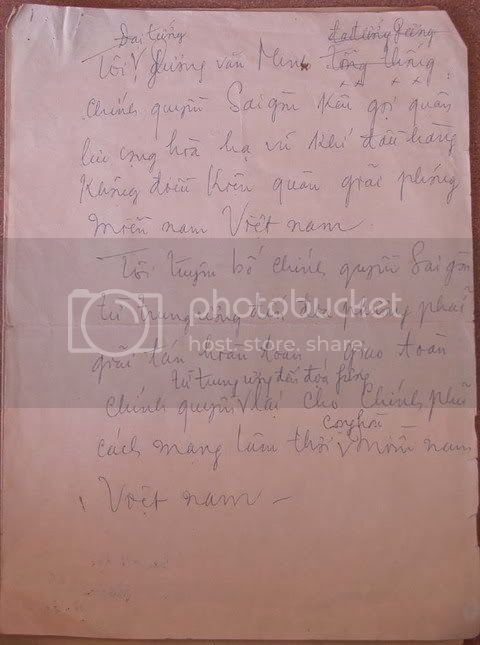 Đại tướng đại tướng
Tôi, Dương văn Minh tổng thống
chính quyền Sài gòn kêu gọi quân
lực cộng hoà hạ vũ khí đầu hàng
không điều kiện quân giải phóng
miền nam Việt nam
Tôi tuyên bố chính quyền Sài gòn
từ trung ương đến địa phương phải
giải tán hoàn toàn giao toàn
từ trung ương đến địa phương
chính quyền lại cho chính phủ
cộng hoà
cách mạng lâm thời miền nam
Việt nam –
photobucket
host. store. share.